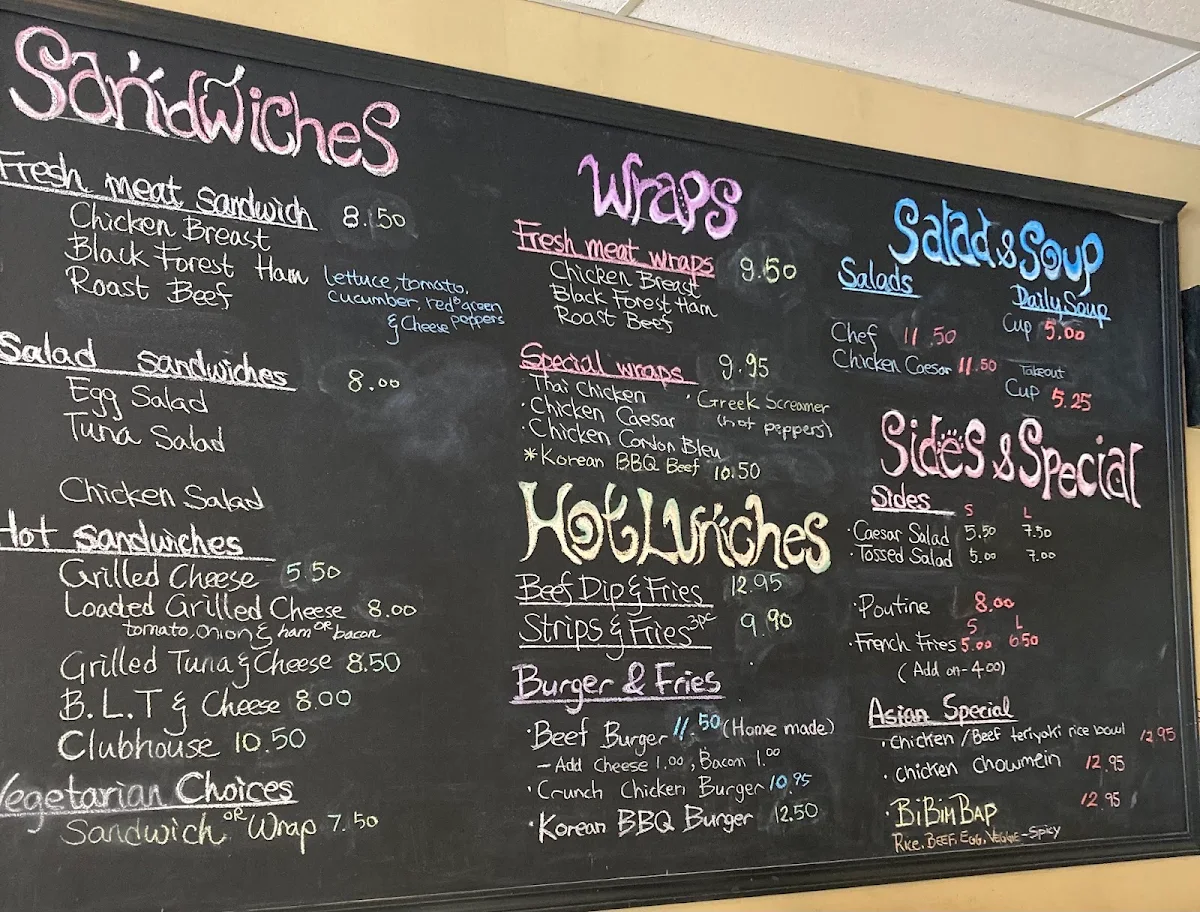 Sandwiches
Fresh meat sandwich 8.50
Chicken Breast
Black Forest Ham
Roast Beef
lettuce, tomato,
cucumber, red & green
& Cheese peppers
Salad sandwiches 8.00
Egg Salad
Tuna Salad
Chicken Salad
Hot sandwiches
Grilled Cheese 5.50
Loaded Grilled Cheese 8.00
tomato, onion & ham or bacon
Grilled Tuna & Cheese 8.50
B.L.T & Cheese 8.00
Clubhouse 10.50
Vegetarian Choices
Sandwich or Wrap 7.50
Wraps
Fresh meat wraps 9.50
Chicken Breast
Black Forest Ham
Roast Beef
Special wraps 9.95
· Thai Chicken
· Chicken Caesar
· Chicken Cordon Bleu
· Greek Screamer
(hot peppers)
* Korean BBQ Beef 10.50
Hot Lunches
Beef Dip & Fries 12.95
Strips & Fries 3pc 9.90
Burger & Fries
· Beef Burger 11.50 (Home made)
- Add Cheese 1.00, Bacon 1.00
· Crunch Chicken Burger 10.95
· Korean BBQ Burger 12.50
Salad & Soup
Salads
Chef 11.50
Chicken Caesar 11.50
Daily Soup
Cup 5.00
Takeout
Cup 5.25
Sides & Special
Sides S L
· Caesar Salad 5.50 7.50
· Tossed Salad 5.00 7.00
· Poutine 8.00
S L
· French Fries 5.00 6.50
(Add on - 4.00)
Asian Special
· Chicken/Beef teriyaki rice bowl 12.95
· Chicken Chowmein 12.95
· BiBimBap 12.95
Rice, Beef, Egg, Veggie - Spicy